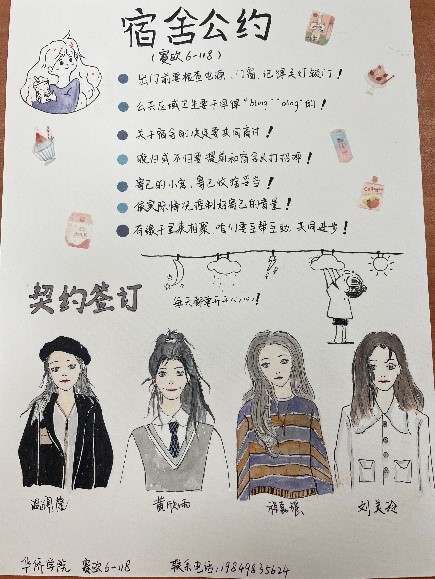 宿舍公约
(赛欧6-118)
出门前要检查电源、门窗，记得关灯锁门！
公共区域卫生要干净得"bling""bling"的！
关于宿舍的决定要共同商讨！
晚归或不归要提前和宿舍人打招呼！
自己的小窝，自己收拾妥当！
依实际情况控制好自己的音量！
有缘千里来相聚，咱们要互帮互助，共同进步！
每天都要开开心心！
契约签订
黄欣雨
刘美玲
华侨学院 赛欧6-118 联系电话:19849835624